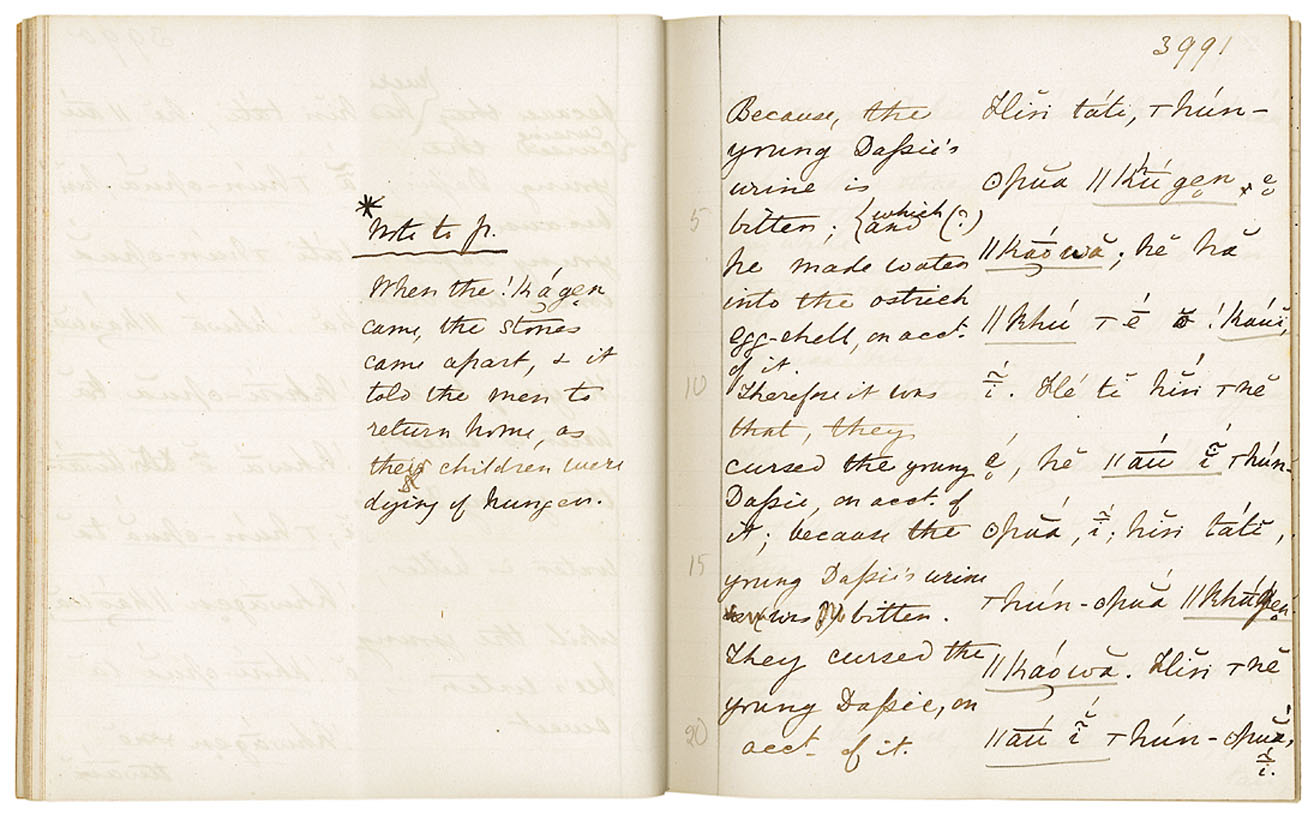 *
Note to p.
When the !Kágen
came, the stones
came apart, & it
told the men to
return home, as
their children were
dying of hunger.
3991
Because, the
young Dassie's
urine is
5
bitter; {which and (?)
he made water
into the ostrich
egg-shell, on acct.
of it.
10
Therefore it was
that, they
cursed the young
Dassie, on acct. of
it; because the
15
young Dassie's urine
was bitter.
They cursed the
young Dassie, on
20
acct. of it.
Hĭn táti, ⊤hún-
ʘpŭa ǁkhúgen
ǁkáówă; hĕ hă
ǁkhú ⊤é ŏ !káúï,
ĩ. Hé tĭ hĭn ⊤nĕ
é, hĕ ǁáú ĩ ⊤hún-
ʘpŭá, ĩ; hĭn tátĭ,
⊤hún-ʘpŭá ǁkhúgen
ǁkáówă. Hĭn ⊤nĕ
ǁáú ĩ ⊤hún-ʘpŭá,
ĩ.